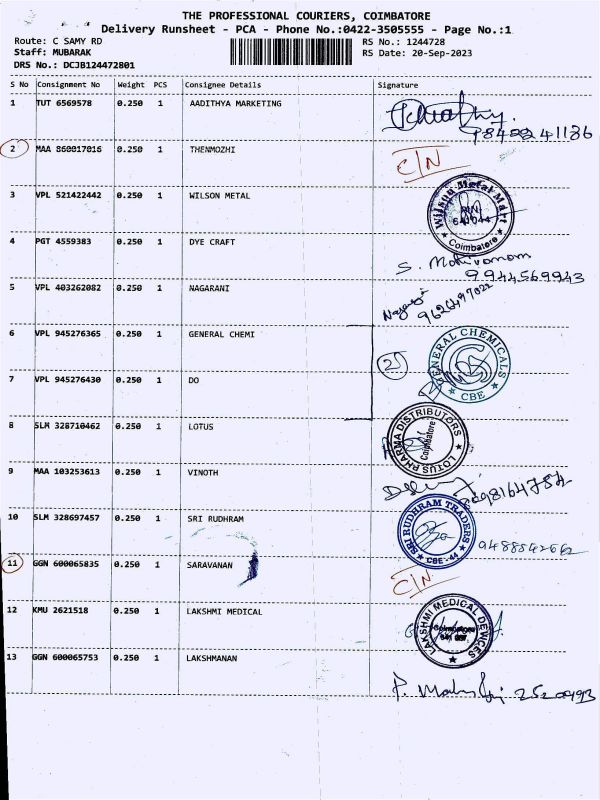 THE PROFESSIONAL COURIERS, COIMBATORE
Delivery Runsheet - PCA - Phone No.:0422-3505555 - Page No.:1
Route: C SAMY RD
RS No.: 1244728
Staff: MUBARAK
RS Date: 20-Sep-2023
DRS No.: DCJB124472801
S No Consignment No Weight PCS Consignee Details Signature
1 TUT 6569578 0.250 1 AADITHYA MARKETING
2 MAA 860017016 0.250 1 THENMOZHI C/N
3 VPL 521422442 0.250 1 WILSON METAL
Wilson Metal Mart
Coimbatore
4 PGT 4559383 0.250 1 DYE CRAFT
9944569943
5 VPL 403262082 0.250 1 NAGARANI
6 VPL 945276365 0.250 1 GENERAL CHEMI
2
GENERAL CHEMICALS
CBE
7 VPL 945276430 0.250 1 DO
8 SLM 328710462 0.250 1 LOTUS
LOTUS PHARMA DISTRIBUTORS
Coimbatore
9 MAA 103253613 0.250 1 VINOTH
10 SLM 328697457 0.250 1 SRI RUDHRAM
SRI RUDHRAM TRADERS
CBE-44
11 GGN 600065835 0.250 1 SARAVANAN C/N
12 KMU 2621518 0.250 1 LAKSHMI MEDICAL
LAKSHMI MEDICAL DEVICES
13 GGN 600065753 0.250 1 LAKSHMANAN